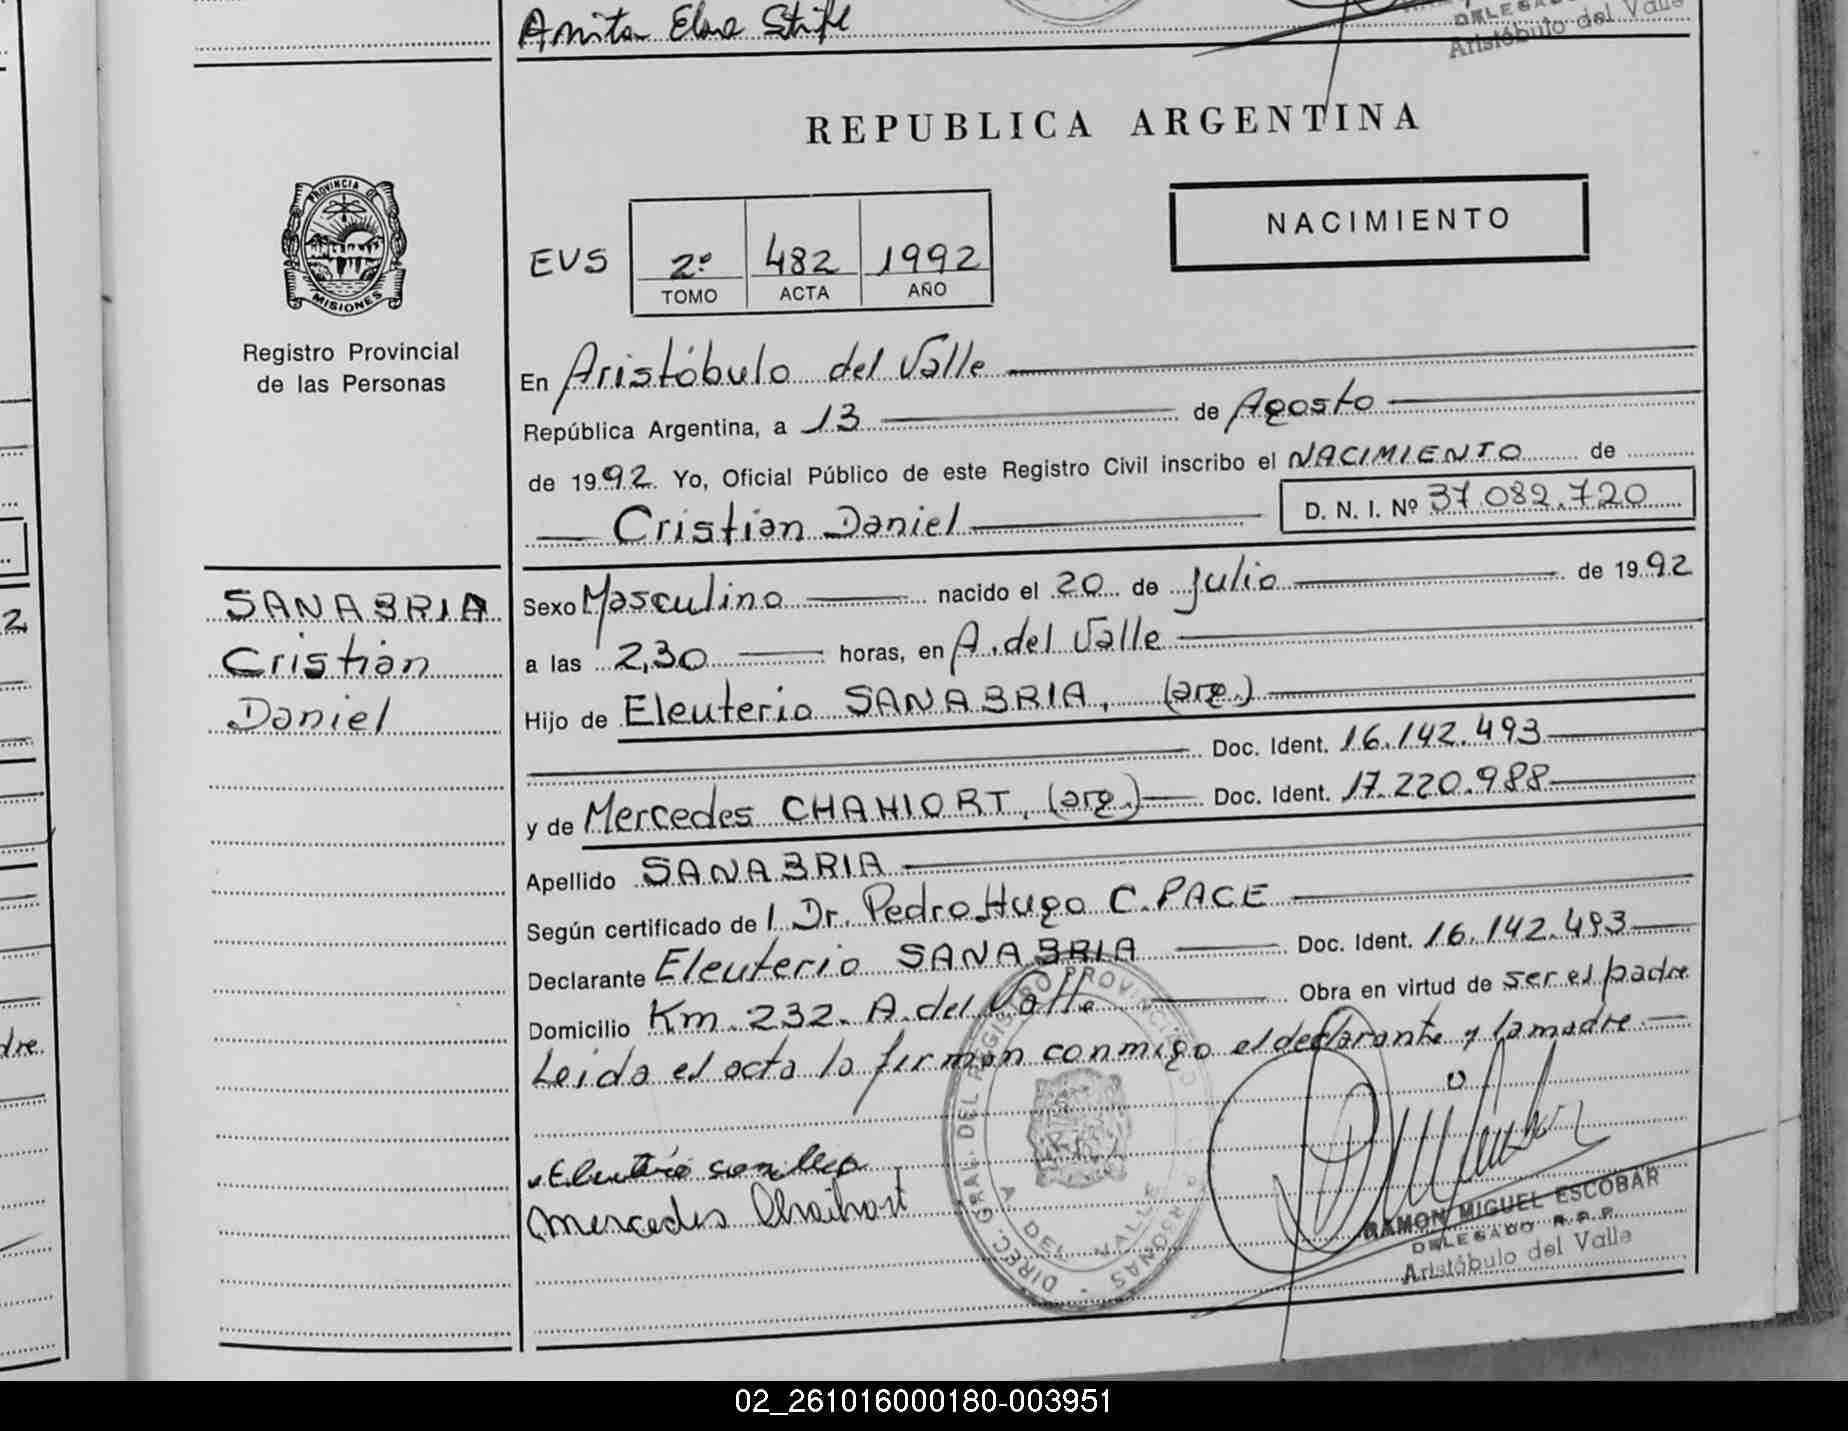 Anita Elsa
DELEGADO
Aristóbulo del Valle
REPUBLICA ARGENTINA
PROVINCIA DE
MISIONES
NACIMIENTO
EVS 2º 482 1992
TOMO ACTA AÑO
Registro Provincial
de las Personas
En Aristóbulo del Valle
República Argentina, a 13 de Agosto
de 1992. Yo, Oficial Público de este Registro Civil inscribo el NACIMIENTO de
Cristian Daniel D. N. I. Nº 37.082.720
SANABRIA
Cristian
Daniel
Sexo Masculino nacido el 20 de Julio de 1992
a las 2,30 horas, en A. del Valle
Hijo de Eleuterio SANABRIA, (arg.)
Doc. Ident. 16.142.493
y de Mercedes CHAHIORT, (arg.) Doc. Ident. 17.220.988
Apellido SANABRIA
Según certificado de l Dr. Pedro Hugo C. PACE
Declarante Eleuterio SANABRIA Doc. Ident. 16.142.493
Domicilio Km. 232. A. del Valle Obra en virtud de ser el padre
Leida el acta la firman conmigo el declarante y la madre.
DIREC. GRAL. DEL REGISTRO PROVINCIAL
PERSONAS
A. DEL VALLE
Mercedes
RAMON MIGUEL ESCOBAR
DELEGADO R.P.P.
Aristóbulo del Valle
2
dre.
02_261016000180-003951